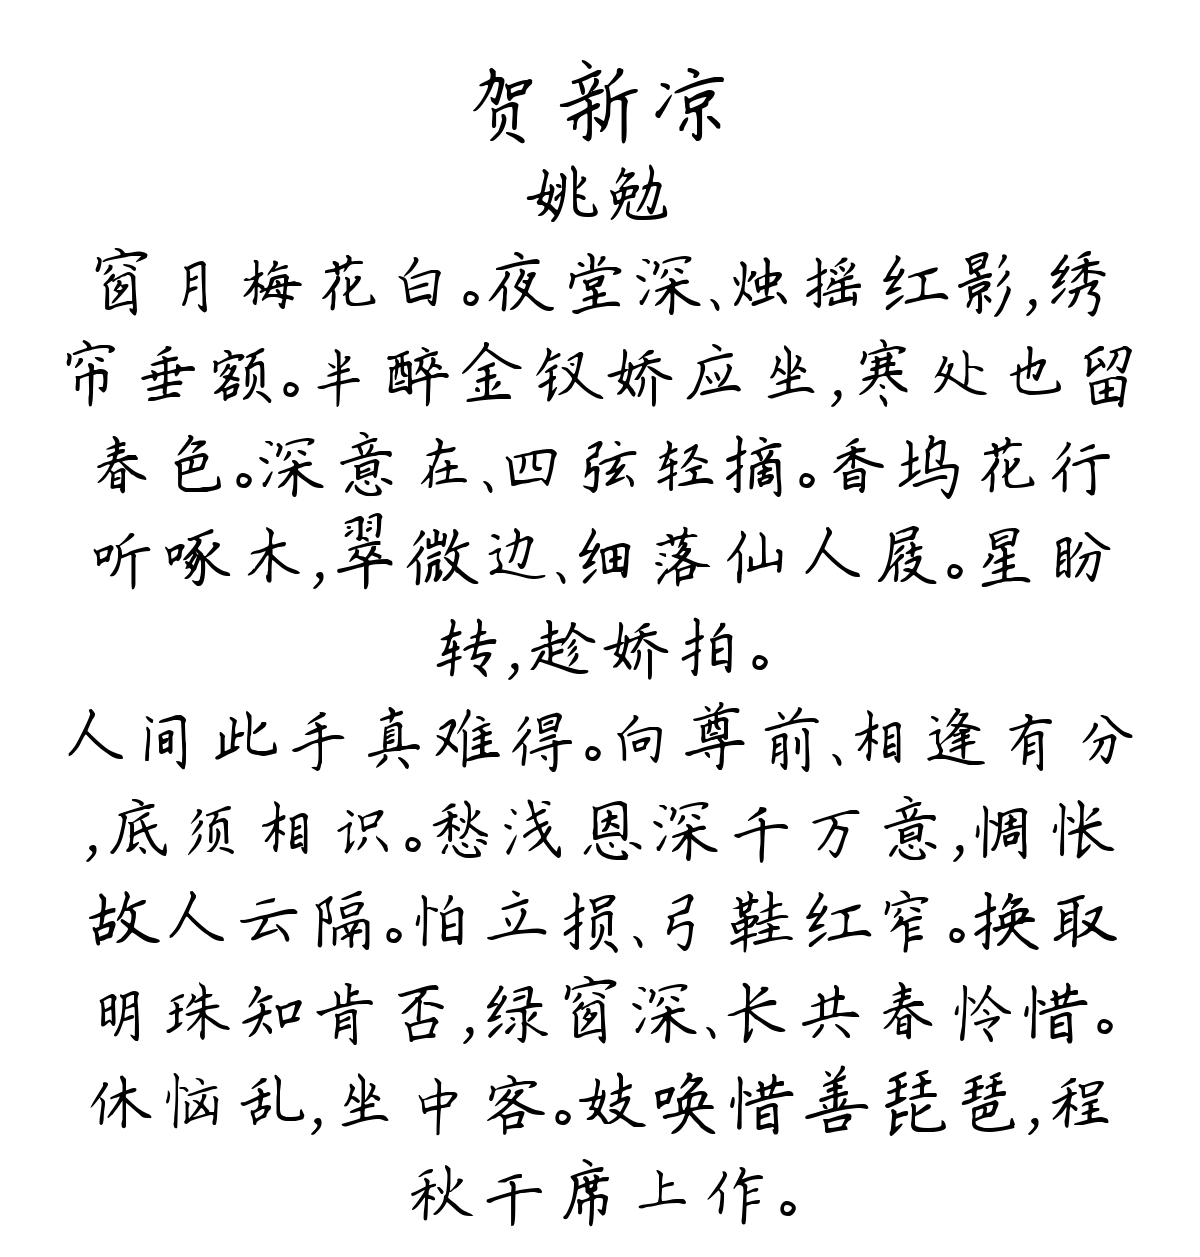 贺新凉
姚勉
窗月梅花白。夜堂深、烛摇红影,绣
帘垂额。半醉金钗娇应坐,寒处也留
春色。深意在、四弦轻摘。香坞花行
听啄木,翠微边、细落仙人屐。星盼
转,趁娇拍。
人间此手真难得。向尊前、相逢有分
,底须相识。愁浅恩深千万意,惆怅
故人云隔。怕立损、弓鞋红窄。换取
明珠知肯否,绿窗深、长共春怜惜。
休恼乱,坐中客。妓唤惜善琵琶,程
秋干席上作。